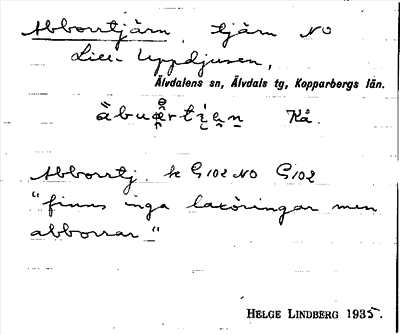 Abborrtjärn, tjärn NO
Lill-Uppdjusen,
Älvdalens sn, Älvdals tg, Kopparbergs län.
Kå.
Abborrtj. k G102 NO G102
"finns inga laxöringar men
abborrar"
HELGE LINDBERG 1935.